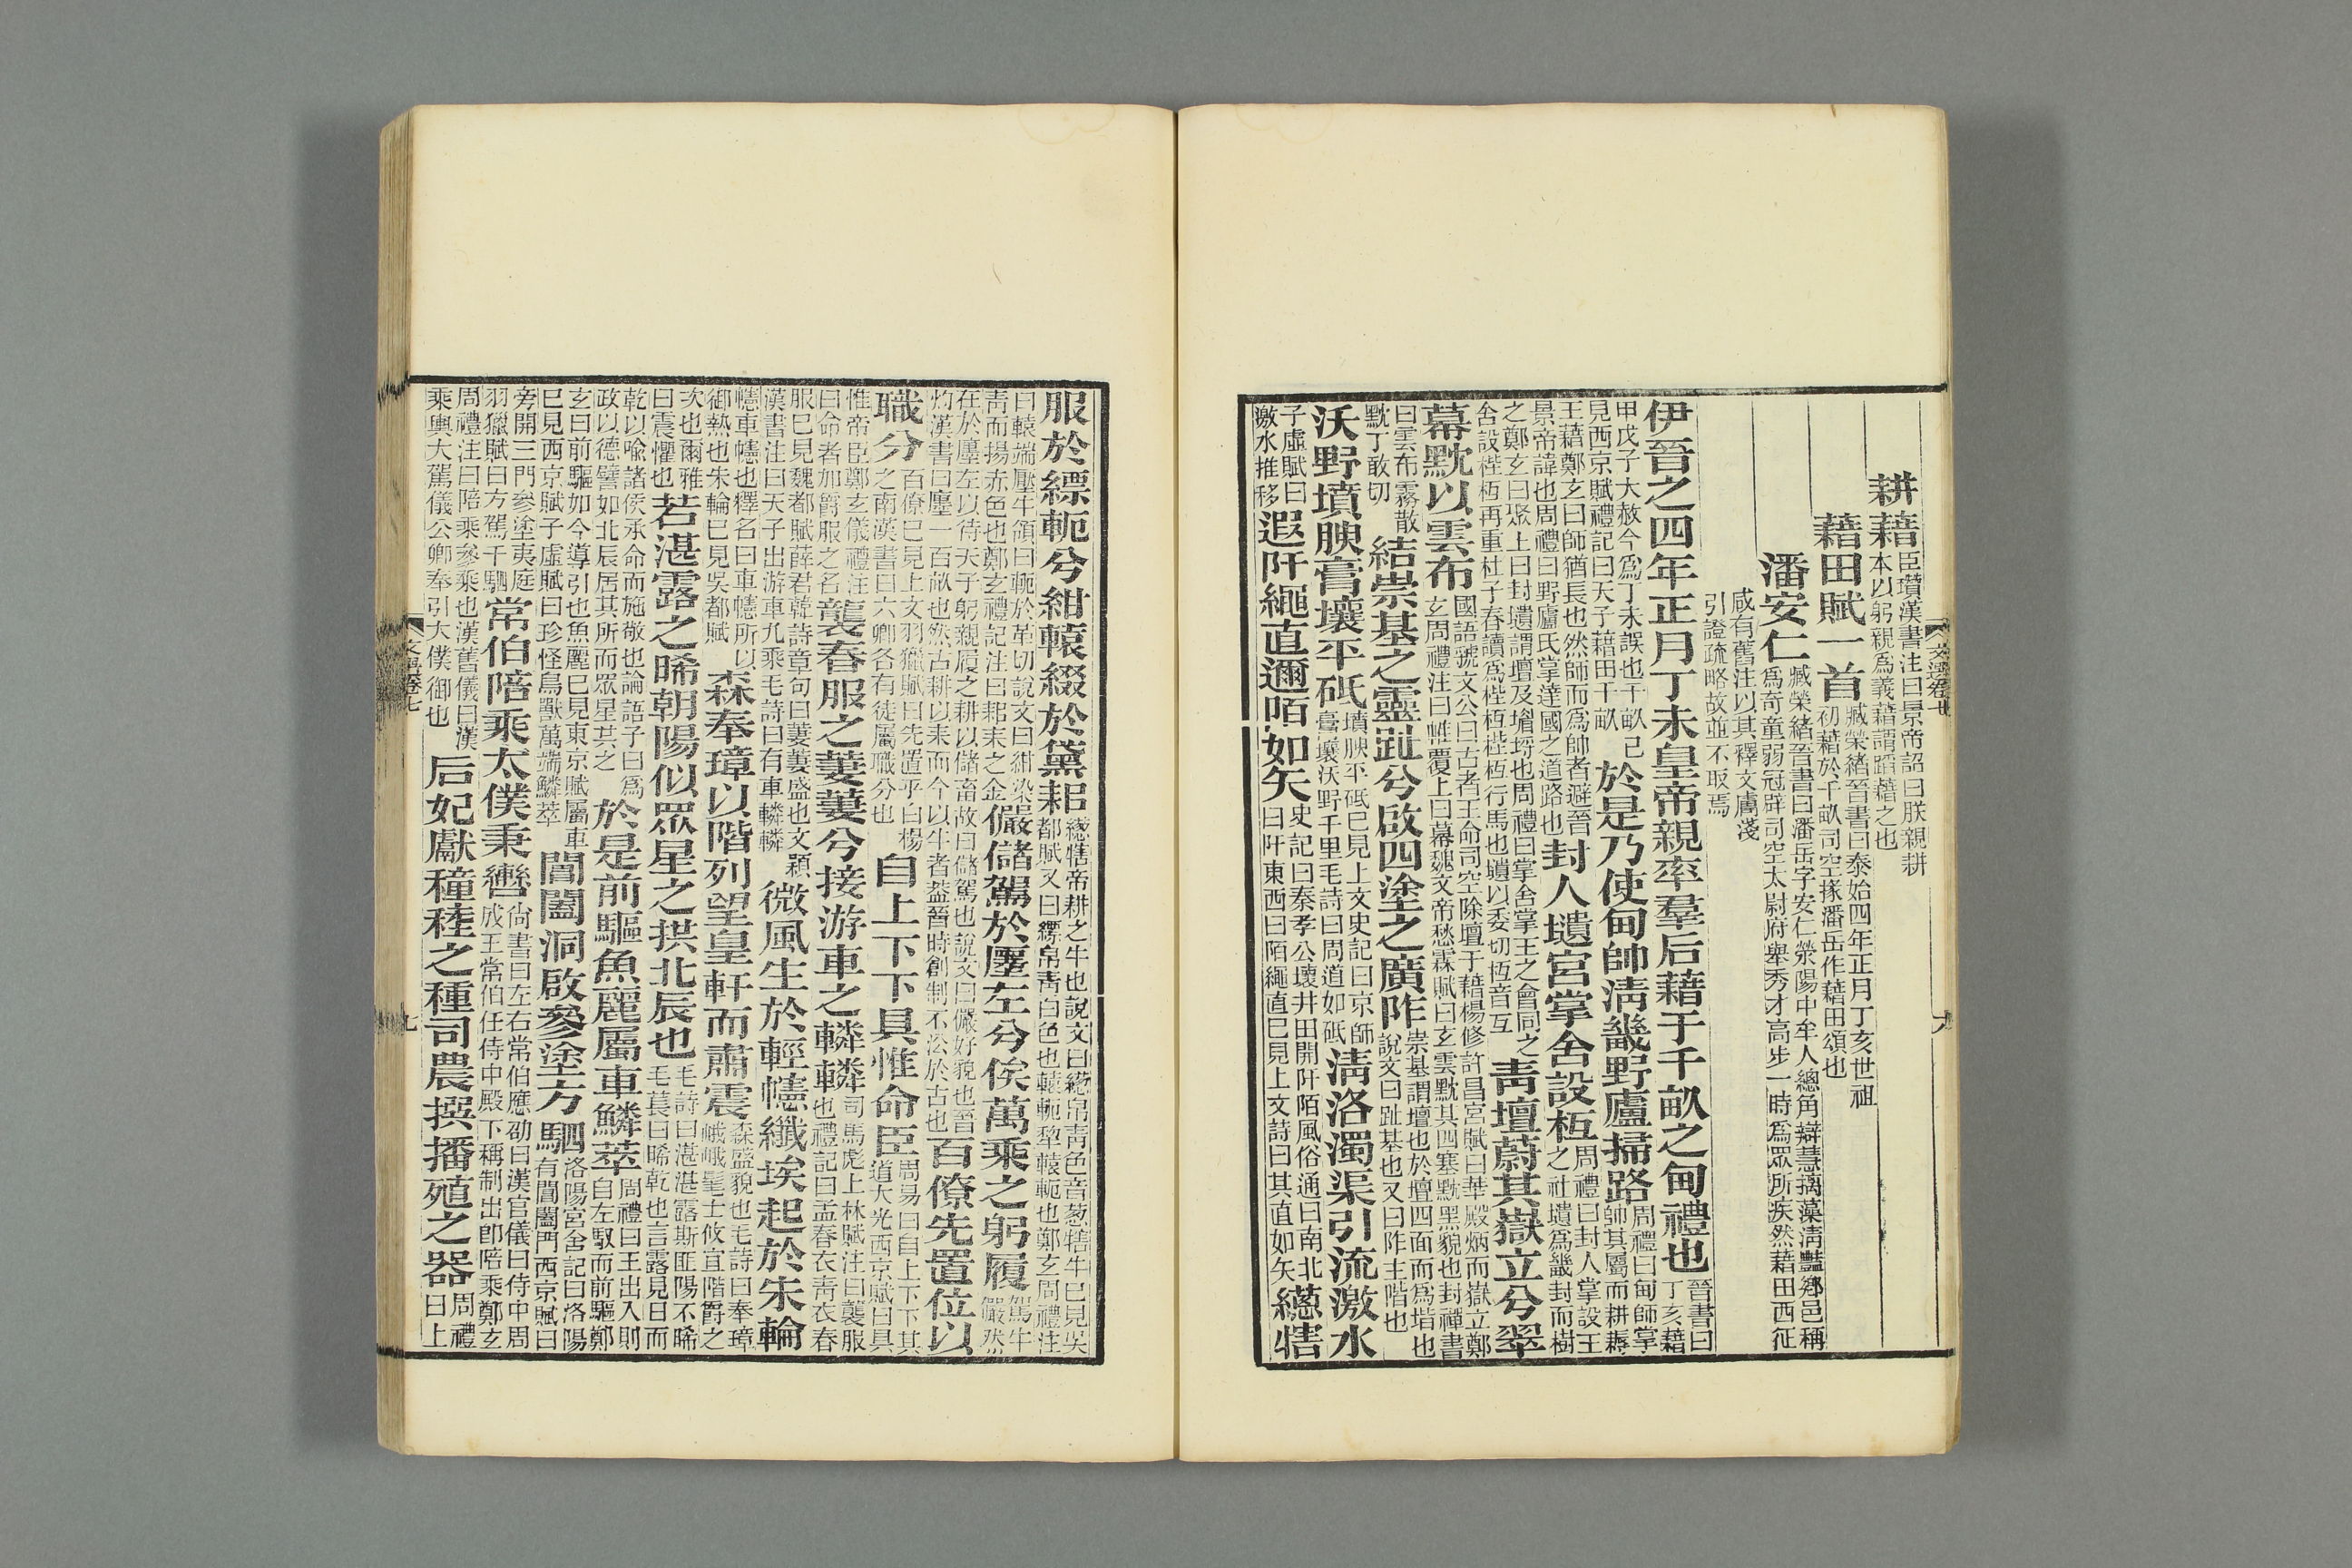 耕藉臣瓚漢書注曰景帝詔曰朕親耕本以躬親爲義藉謂蹈藉之也
藉田賦一首臧榮緒晉書曰泰始四年正月丁亥世祖初藉於千畝司空掾潘岳作藉田頌也
潘安仁臧榮緒晉書曰潘岳字安仁滎陽中牟人總角辯慧摛藻清豔鄉邑稱爲奇童弱冠辟司空太尉府舉秀才高步一時爲眾所疾然藉田西征
咸有舊注以其釋文膚淺引證疏略故並不取焉
伊晉之四年正月丁未皇帝親率羣后藉于千畝之甸禮也晉書曰丁亥藉
甲戊子大赦今爲丁未誤也千畝已見西京賦禮記曰天子藉田千畝於是乃使甸帥清畿野廬掃路周禮曰甸師掌帥其屬而耕耨
王藉鄭玄曰師猶長也然師而爲帥者避晉景帝諱也周禮曰野廬氏掌達國之道路也封人壝宮掌舍設枑周禮曰封人掌設王之社壝爲畿封而樹
之鄭玄曰聚土曰封壝謂壇及堳埒也周禮曰掌舍掌王之會同之舍設梐枑再重杜子春讀爲梐枑梐枑行馬也壝以委切枑音互青壇蔚其嶽立兮翠
幕黕以雲布國語虢文公曰古者王命司空除壇于藉楊修許昌宮賦曰華殿炳而嶽立鄭玄周禮注曰帷覆上曰幕魏文帝愁霖賦曰玄雲黕其四塞黕黑貌也封禪書
曰雲布霧散黕丁敢切結崇基之靈趾兮啟四塗之廣阼崇基謂壇也於壇四面而爲堦也說文曰趾基也又曰阼主階也
沃野墳腴膏壤平砥墳腴平砥已見上文史記曰京師膏壤沃野千里毛詩曰周道如砥清洛濁渠引流激水
子虛賦曰激水推移遐阡繩直邇陌如矢史記曰秦孝公壞井田開阡陌風俗通曰南北曰阡東西曰陌繩直已見上文詩曰其直如矢葱犗
服於縹軛兮紺轅綴於黛耜葱犗帝耕之牛也說文曰繱帛青色音葱犗牛已見吳都賦又曰縹帛青白色也轅軛犂轅軛也鄭玄周禮注
曰轅端壓牛領曰軛於革切說文曰紺染青而揚赤色也鄭玄禮記注曰耜耒之金儼儲駕於廛左兮俟萬乘之躬履儼然駕牛
在於廛左以待天子躬親履之耕以儲畜故曰儲駕也說文曰儼好貌也晉灼漢書曰廛一百畝也然古耕以耒而今以牛者蓋晉時創制不㳂於古也百僚先置位以
職分百僚已見上文羽獵賦曰先置乎白楊之南漢書曰六卿各有徒屬職分也自上下下具惟命臣周易曰自上下下其道大光西京賦曰具
惟帝臣鄭玄儀禮注曰命者加爵服之名襲春服之萋萋兮接游車之轔轔司馬彪上林賦注曰襲服也禮記曰孟春衣青衣春
服已見魏都賦薛君韓詩章句曰萋萋盛也文穎漢書注曰天子出游車九乘毛詩曰有車轔轔微風生於輕幰纖埃起於朱輪
幰車幰也釋名曰車幰所以御熱也朱輪已見吳都賦森奉璋以階列望皇軒而肅震森盛貌也毛詩曰奉璋峨峨髦士攸宜階爵之
次也爾雅曰震懼也若湛露之晞朝陽似眾星之拱北辰也毛詩曰湛湛露斯匪陽不晞毛萇曰晞乾也言露見日而
乾以喻諸侯承命而施敬也論語子曰爲政以德譬如北辰居其所而眾星共之於是前驅魚麗屬車鱗萃周禮曰王出入則自左馭而前驅鄭
玄曰前驅如今導引也魚麗已見東京賦屬車已見西京賦子虛賦曰珍怪鳥獸萬端鱗萃閶闔洞啟參塗方駟洛陽宮舍記曰洛陽有閶闔門西京賦曰
旁開三門參塗夷庭羽獵賦曰方駕千駟常伯陪乘太僕秉轡尚書曰左右常伯應劭曰漢官儀曰侍中周成王常伯任侍中殿下稱制出卽陪乘鄭玄
周禮注曰陪乘參乘也漢舊儀曰漢乘輿大駕儀公卿奉引大僕御也后妃獻穜稑之種司農撰播殖之器周禮曰上